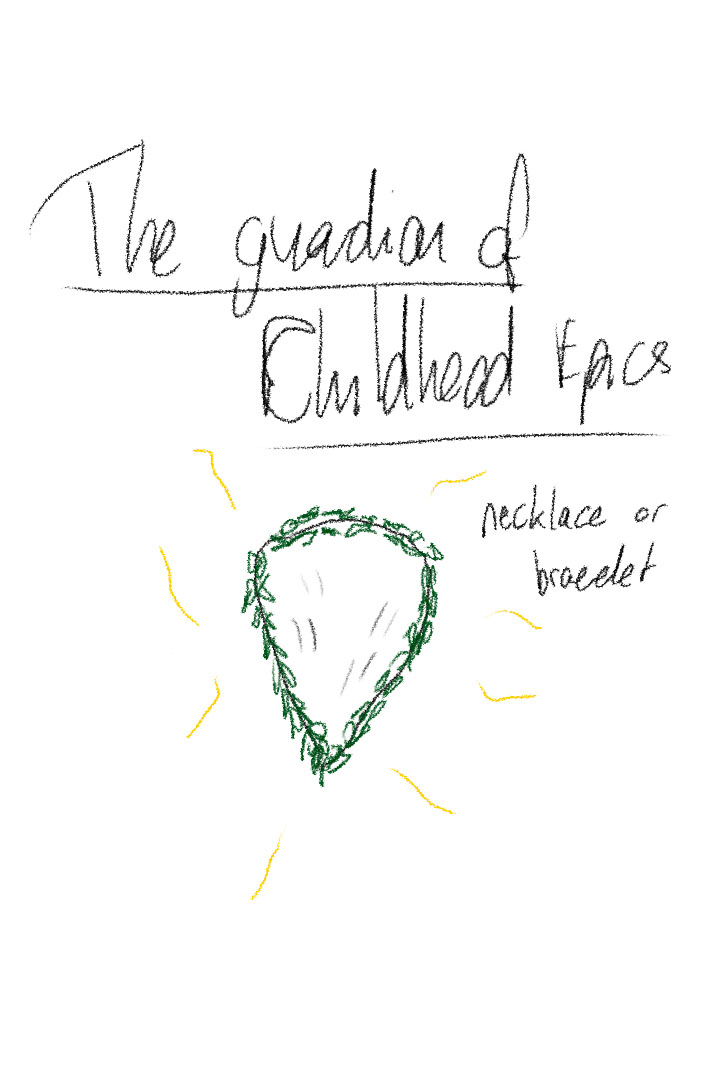 The guardian of
Childhood Epics
necklace or
bracelet